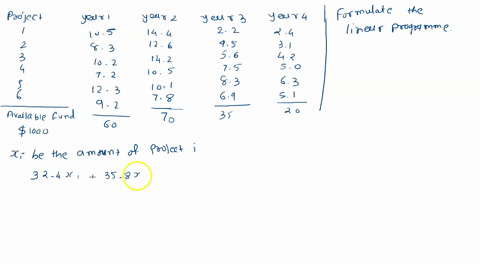 Project year 1 year 2 year 3 year 4
1 10.5 14.4 2.2 2.4
2 8.3 12.6 9.5 3.1
3 10.2 14.2 5.6 4.2
4 7.2 10.5 7.5 5.0
5 12.3 10.1 8.3 6.3
6 9.2 7.8 6.9 5.1
Available fund 60 70 35 20
$ 1000
xi be the amount of project i
32.4x1 + 35.8x
Formulate the
linear programme.